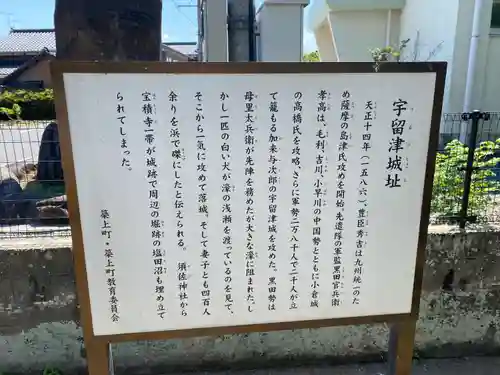 宇留津城址
天正十四年（一五八六）、豊臣秀吉は九州統一のた
め薩摩の島津氏攻めを開始。先遣隊の軍監黒田官兵衛
孝高は、毛利、吉川、小早川の中国勢とともに小倉城
の高橋氏を攻略。さらに軍勢二万八千人で二千人が立
て籠もる加来与次郎の宇留津城を攻めた。黒田勢は
母里太兵衛が先陣を務めたが大きな濠に阻まれた。し
かし一匹の白い犬が濠の浅瀬を渡っているのを見て、
そこから一気に攻めて落城。そして妻子とも四百人
余りを浜で磔にしたと伝えられる。須佐神社から
宝積寺一帯が城跡で周辺の堀跡の塩田沼も埋め立て
られてしまった。
築上町・築上町教育委員会